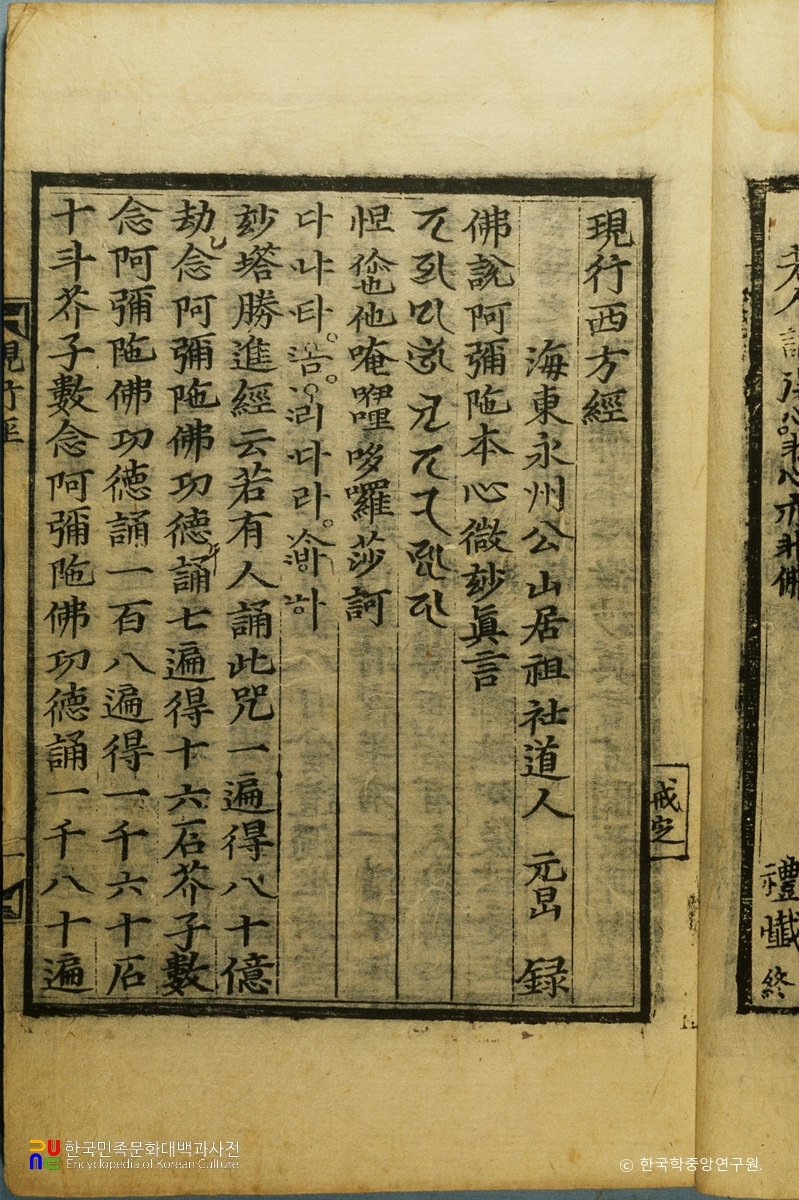 禮懺 終
戒定
現行西方經
海東永州公山居祖社道人 元旵 錄
佛說阿彌陁本心微玅眞言
怛 他唵 哆囉莎訶
다냐타。옴。 리다라。 하
玅塔勝進經云若有人誦此咒一遍得八十億
劫念阿彌陁佛功德誦七遍得十六石芥子數
念阿彌陁佛功德誦一百八遍得一千六十石
十斗芥子數念阿彌陁佛功德誦一千八十遍
現行經 一
한국민족문화대백과사전
Encyclopedia of Korean Culture
© 한국학중앙연구원.